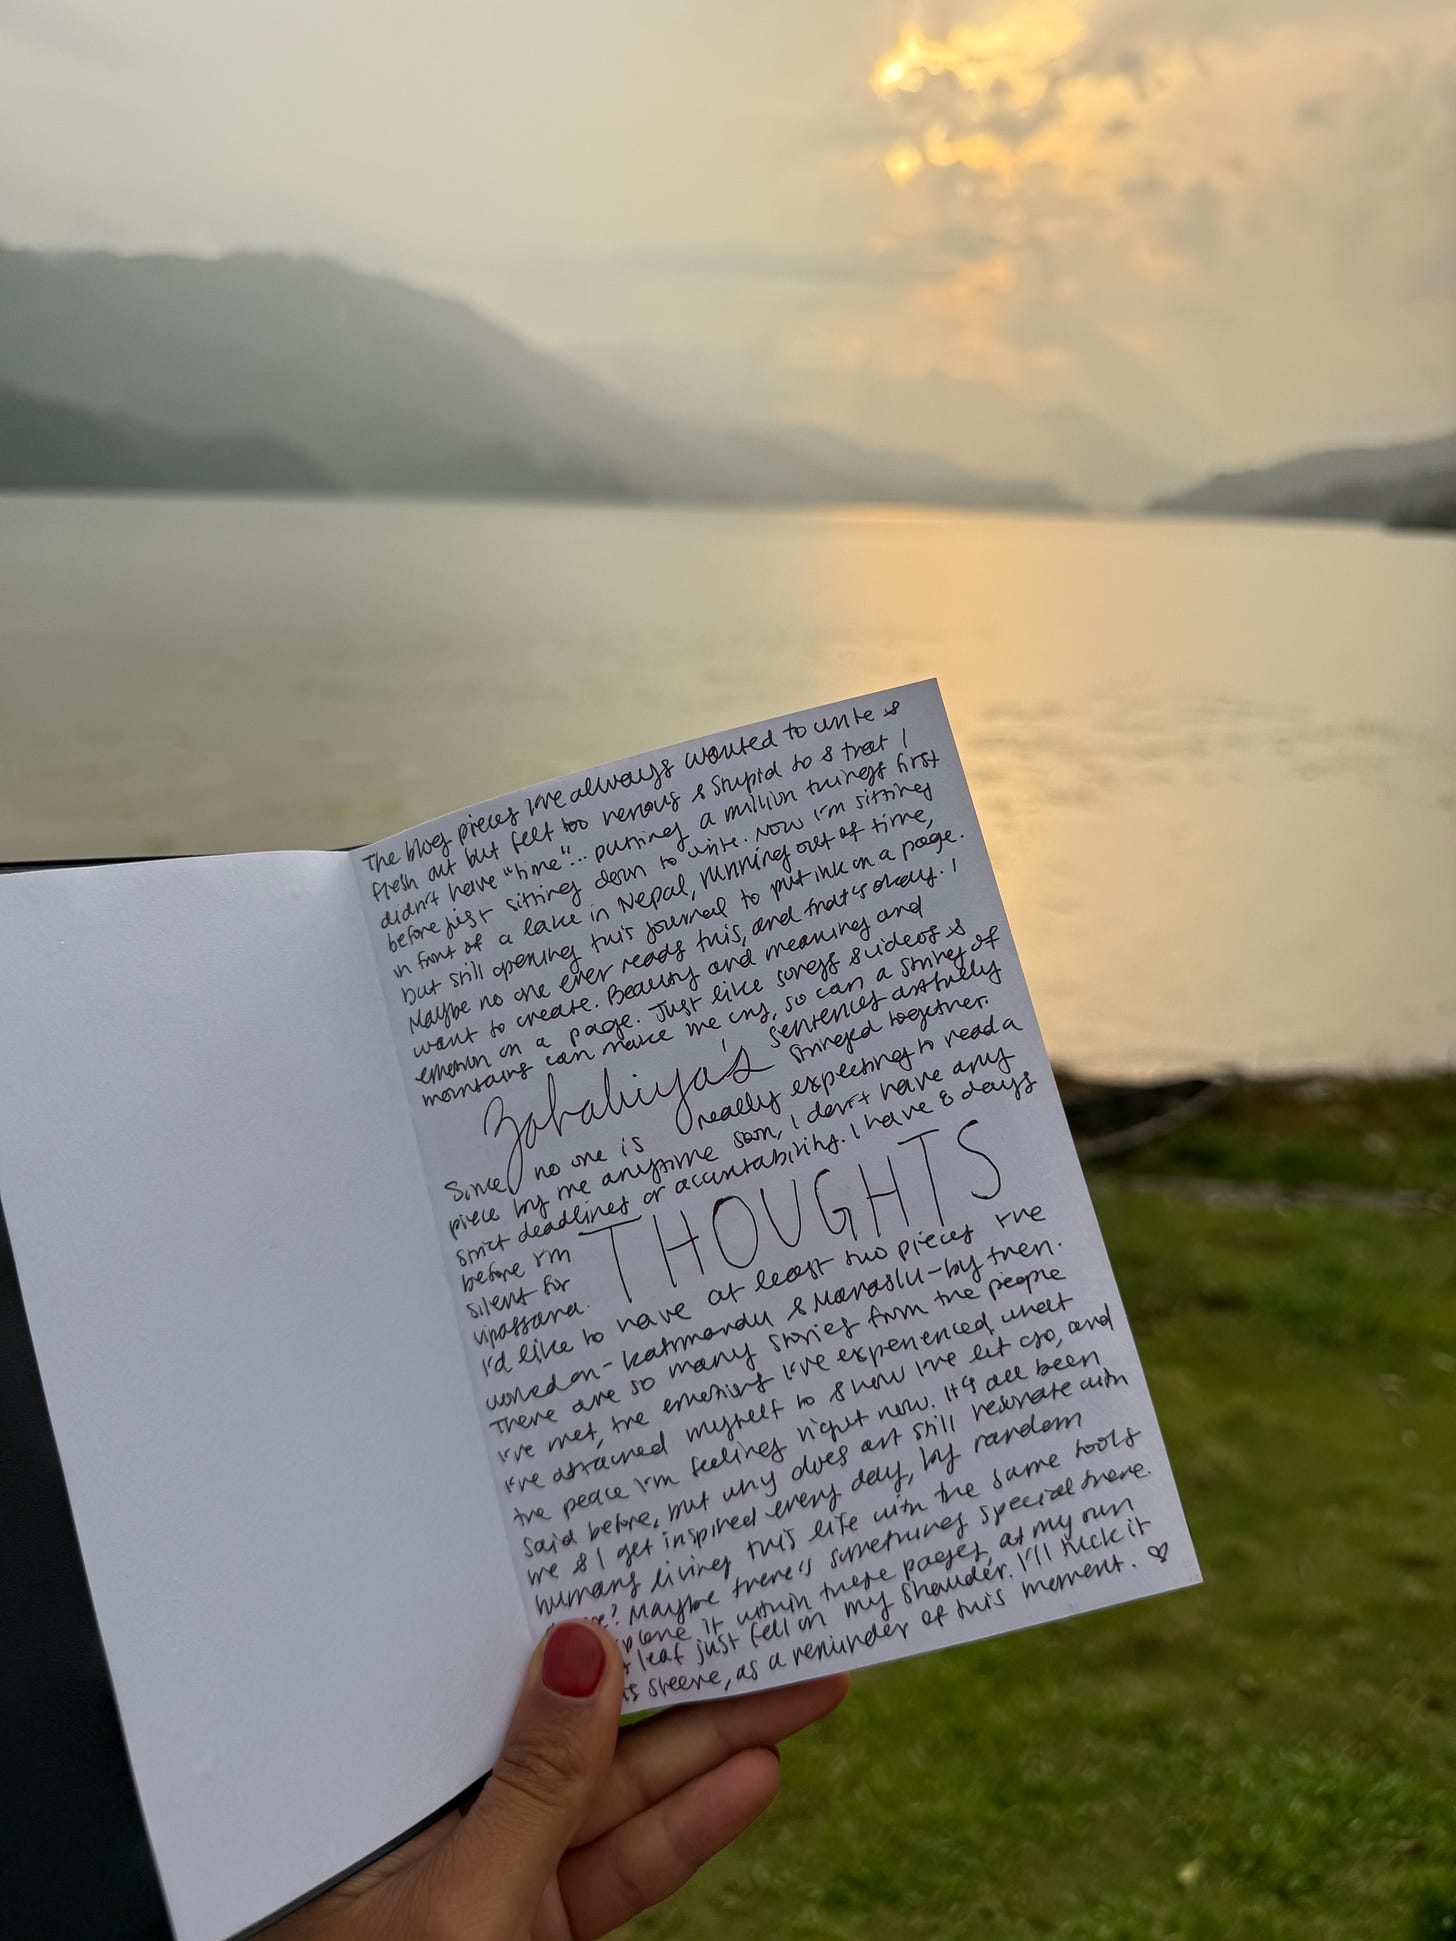 The blog pieces I've always wanted to write &
flesh out but felt too nervous & stupid to & that I
didn't have "time"... putting a million things first
before just sitting down to write. Now I'm sitting
in front of a lake in Nepal, running out of time,
but still opening this journal to put ink on a page.
Maybe no one ever reads this, and that's okay. I
want to create. Beauty and meaning and
emotion on a page. Just like songs & videos &
mountains can make me cry, so can a string of
sentences artfully
stringed together.
Zababiya's
Since no one is really expecting to read a
piece by me anytime soon, I don't have any
strict deadlines or accountability. I have 8 days
before I'm
silent for
vipassana.
THOUGHTS
I'd like to have at least two pieces I've
worked on - Kathmandu & Manaslu - by then.
There are so many stories from the people
I've met, the emotions I've experienced, what
I've attached myself to & how I've let go, and
the peace I'm feeling right now. It's all been
said before, but why does art still resonate with
me & I get inspired every day, by random
humans living this life with the same tools
Maybe there's something special there.
it within these pages, at my own
leaf just fell on my shoulder. I'll tuck it
sleeve, as a reminder of this moment. ♡